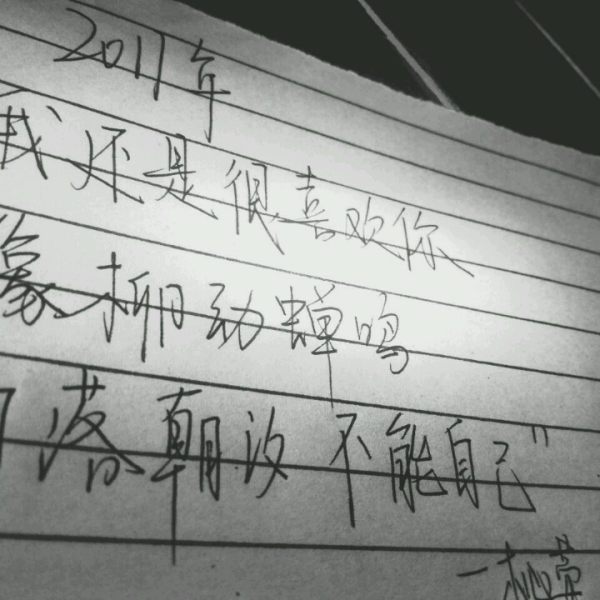 2011年
我还是很喜欢你
像柳动蝉鸣
落朝汐 不能自己"